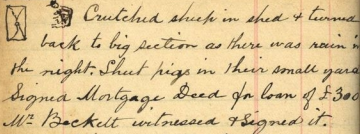 Crutched sheep in shed & turned
back to big section as there was rain in
the night. Shut pigs in their small yard
Signed Mortgage Deed for loan of £300
Mr. Beckett witnessed & signed it.